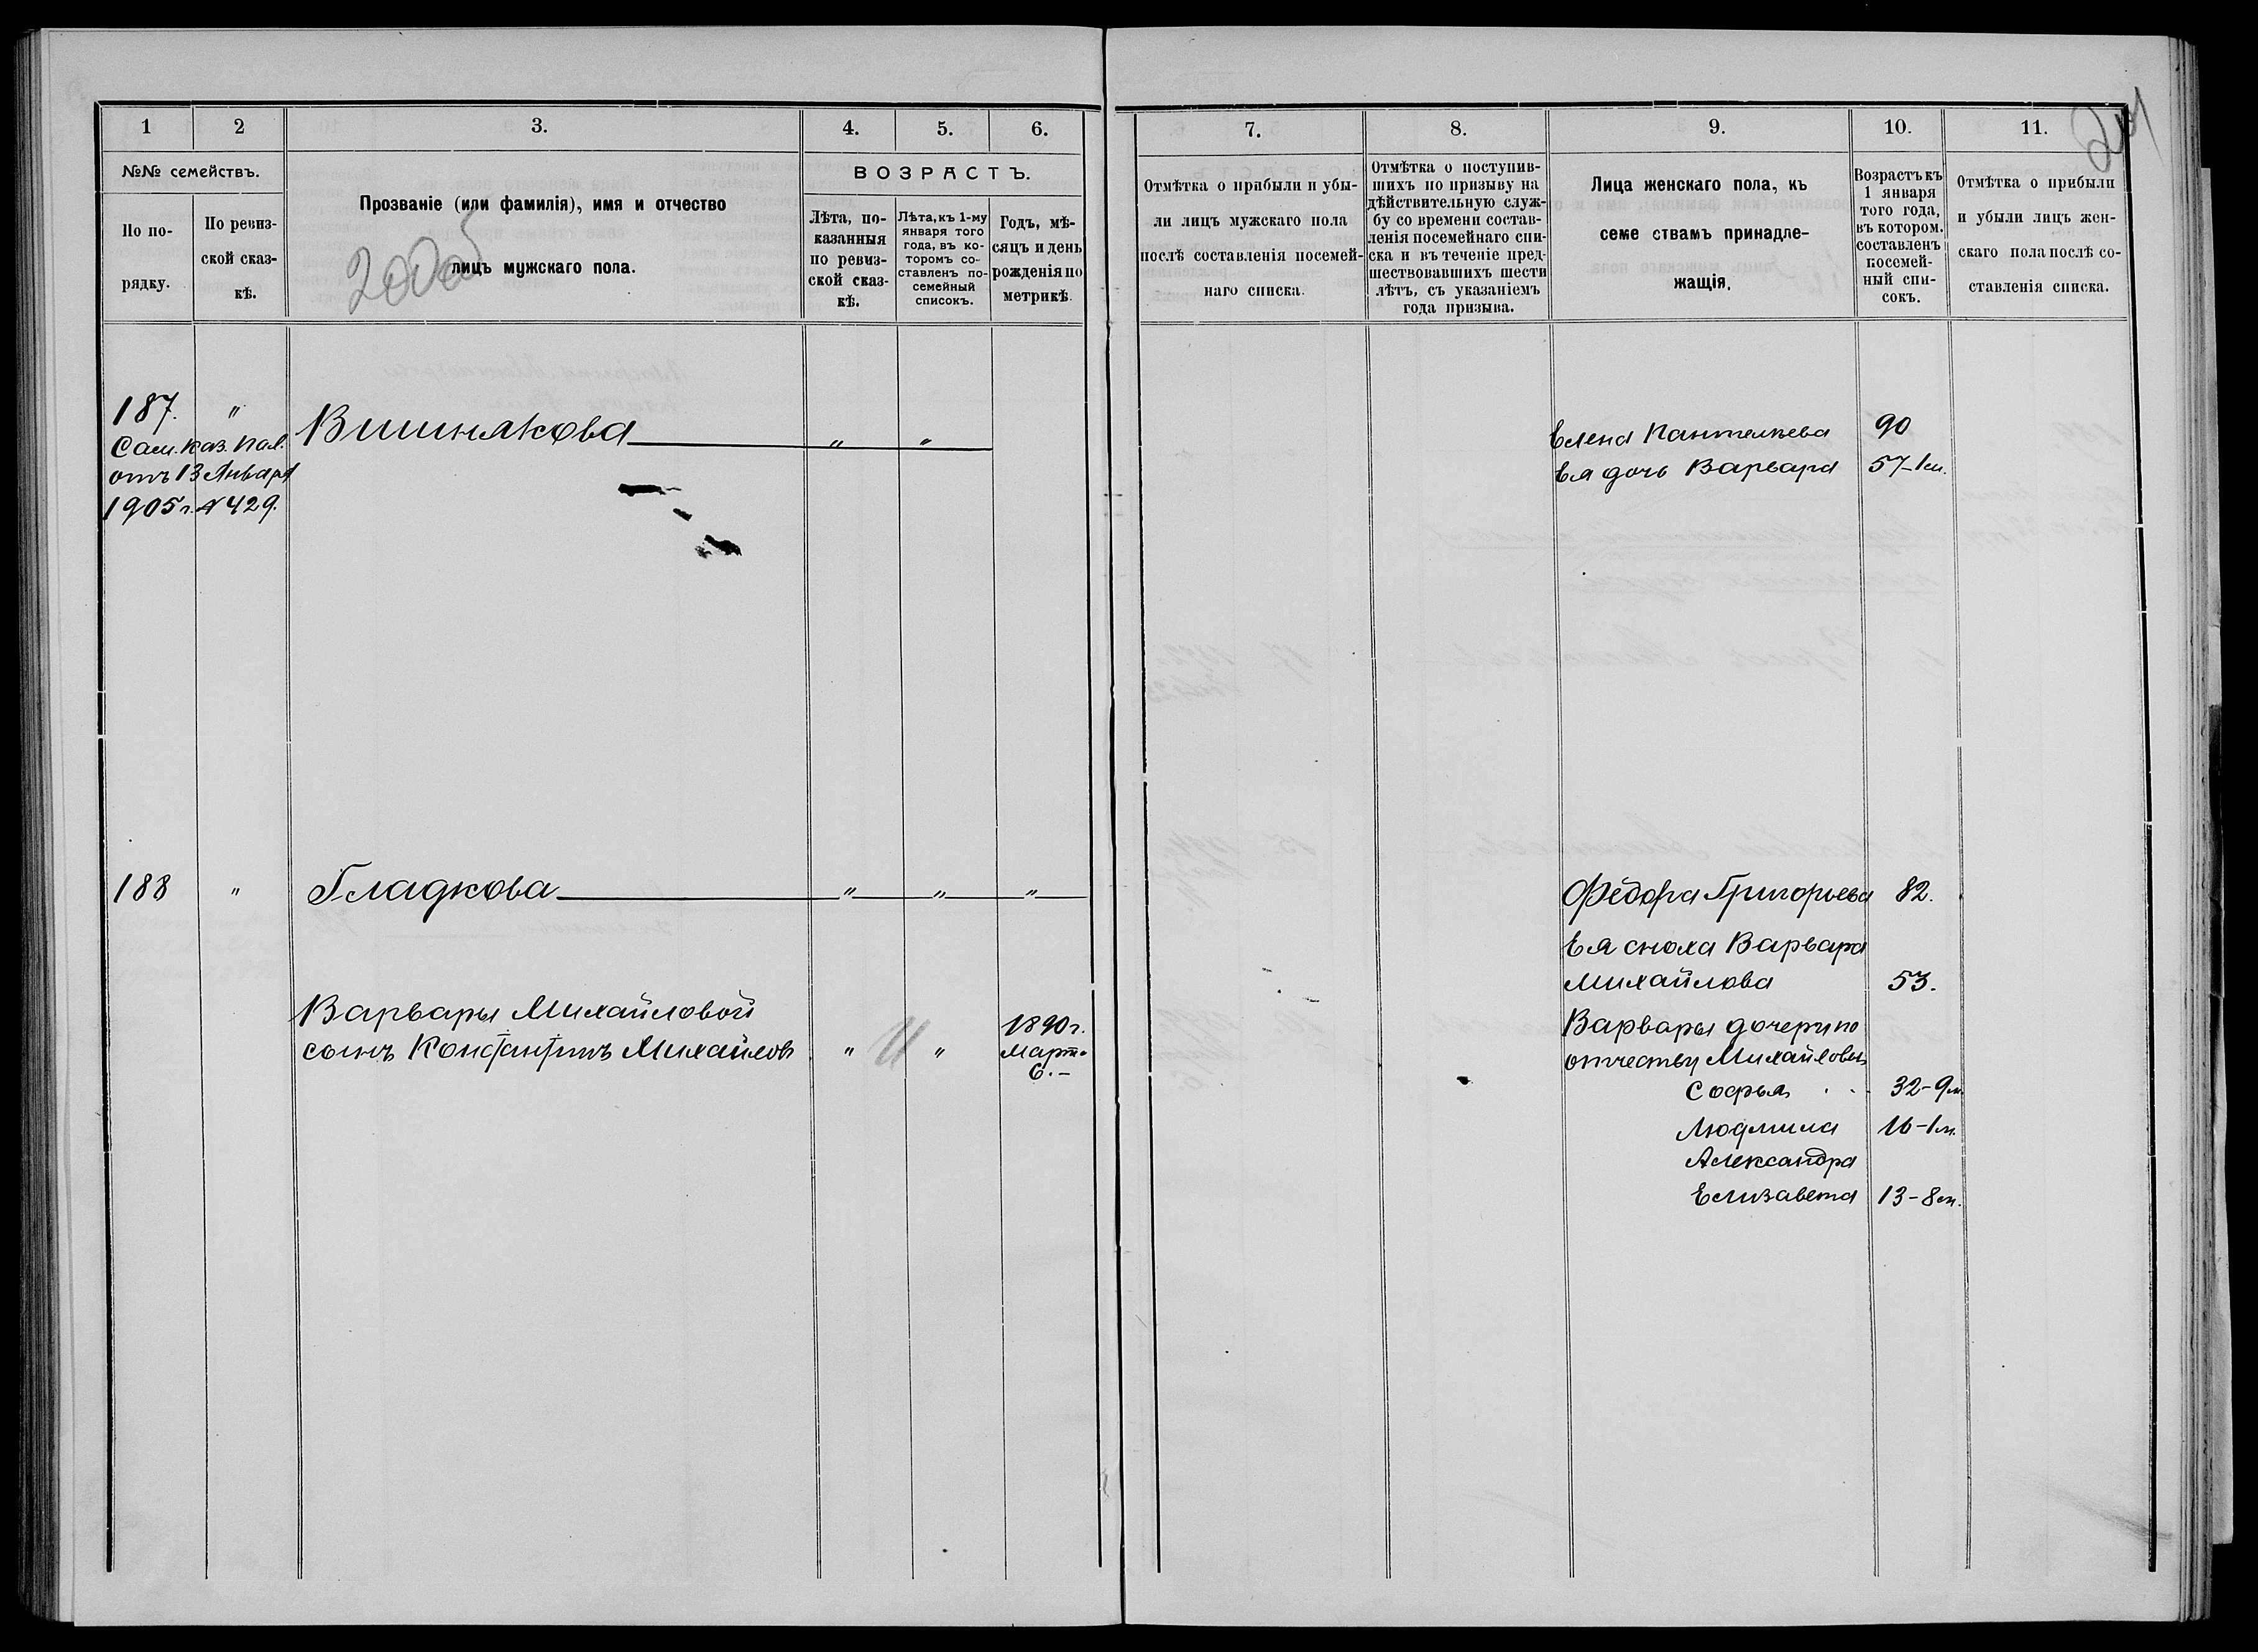 1
2
3.
4.
5.
6.
№№ семействъ.
По по-
рядку.
По ревиз-
ской сказ-
кѣ.
Прозваніе (или фамилія), имя и отчество
лицъ мужскаго пола.
ВОЗРАСТЪ.
Лѣта, по-
казанныя
по ревиз-
ской сказ-
кѣ.
Лѣта, къ 1-му
января того
года, въ ко-
торомъ со-
ставленъ по-
семейный
списокъ.
Годъ, мѣ-
сяцъ и день
рожденія по
метрикѣ.
187. "
Сам. Каз. Пал.
отъ 13 Января
1905 г. № 429.
Вишнякова " "
188 " Гладкова " " "
Варвары Михайловой
сынъ Константинъ Михайловъ " 11 "
1890 г.
Март.
6. -
7.
8.
9.
10.
11.
Отмѣтка о прибыли и убы-
ли лицъ мужскаго пола
послѣ составленія посемей-
наго списка.
Отмѣтка о поступив-
шихъ по призыву на
дѣйствительную служ-
бу со времени состав-
ленія посемейнаго спи-
ска и въ теченіе пред-
шествовавшихъ шести
лѣтъ, съ указаніемъ
года призыва.
Лица женскаго пола, къ
семе ствамъ принадле-
жащія.
Возрастъ къ
1 января
того года,
въ котором.
составленъ
посемей-
ный спи-
сокъ.
Отмѣтка о прибыли
и убыли лицъ жен-
скаго пола послѣ со-
ставленія списка.
Елена Пантелѣева 90
Ея дочь Варвара 57-1 м.
Федора Григорьева 82.
Ея сноха Варвара
Михайлова 53.
Варвары дочери по
отчеству Михайловы
Софья 32-9 м.
Людмила 16-1 м.
Александра
Елизавета 13-8 м.